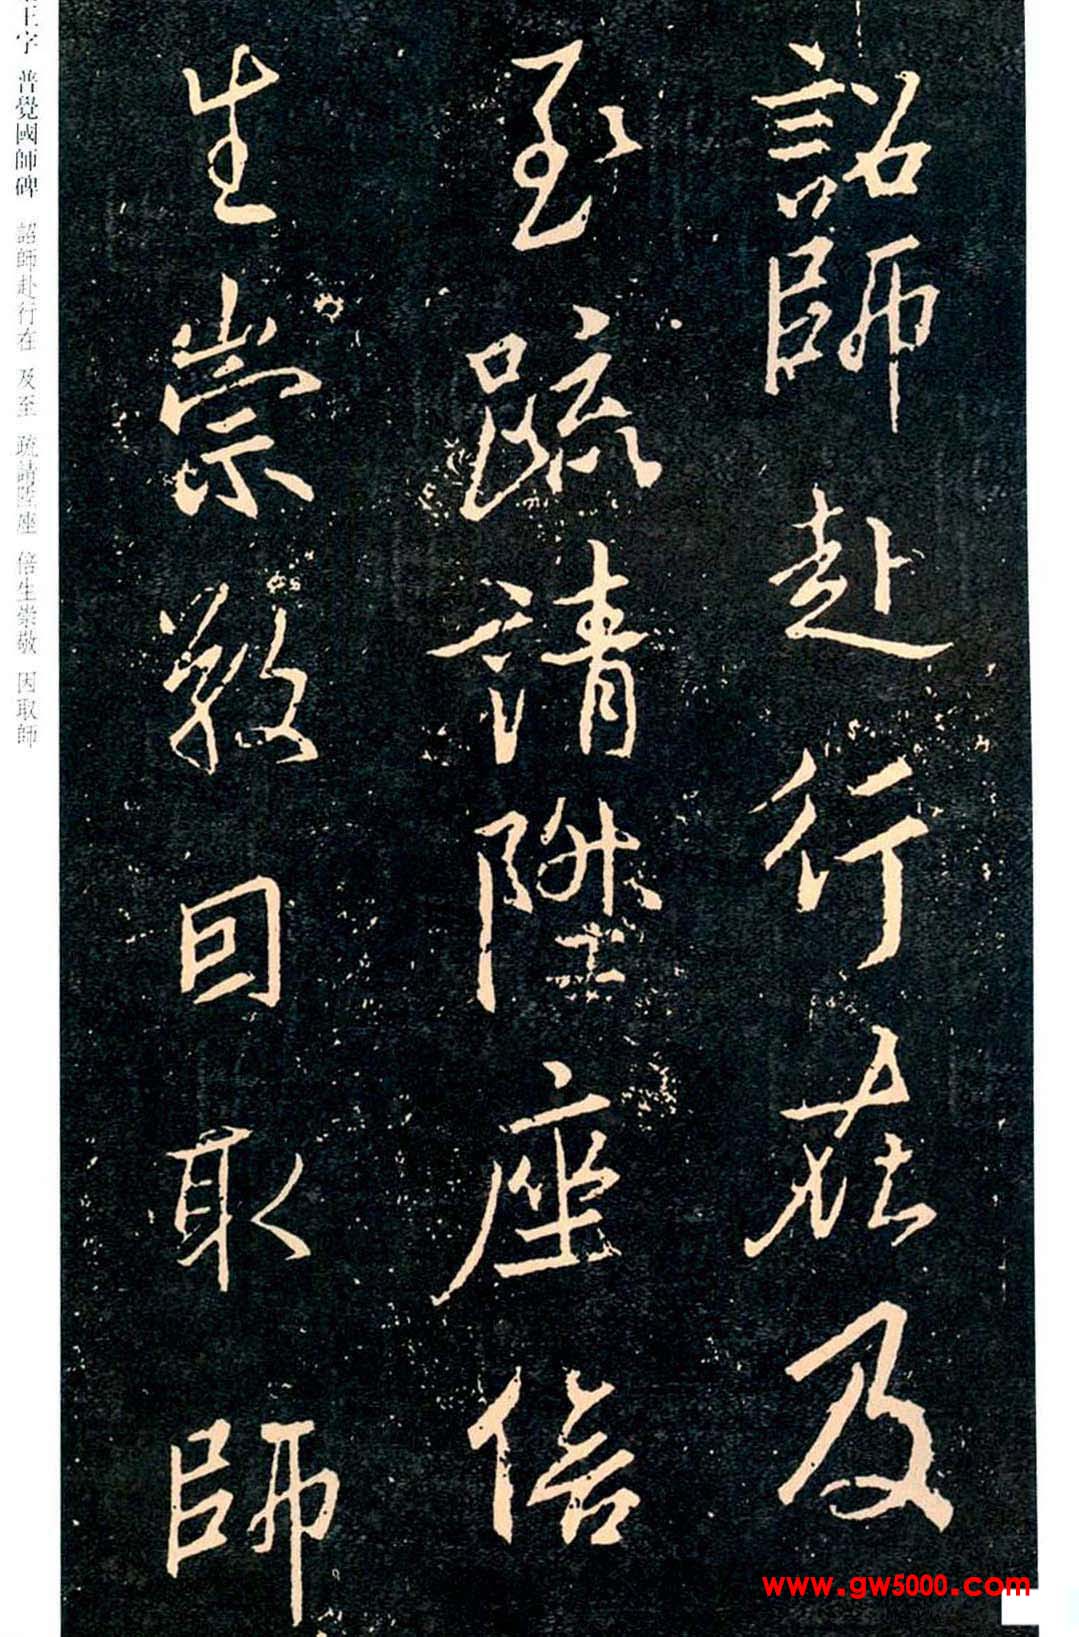 詔師赴行在及
至疏請陞座倍
生崇敬因取師
王字 普覺國師碑 詔師赴行在 及至 疏請陞座 倍生崇敬 因取師
www.gw5000.com